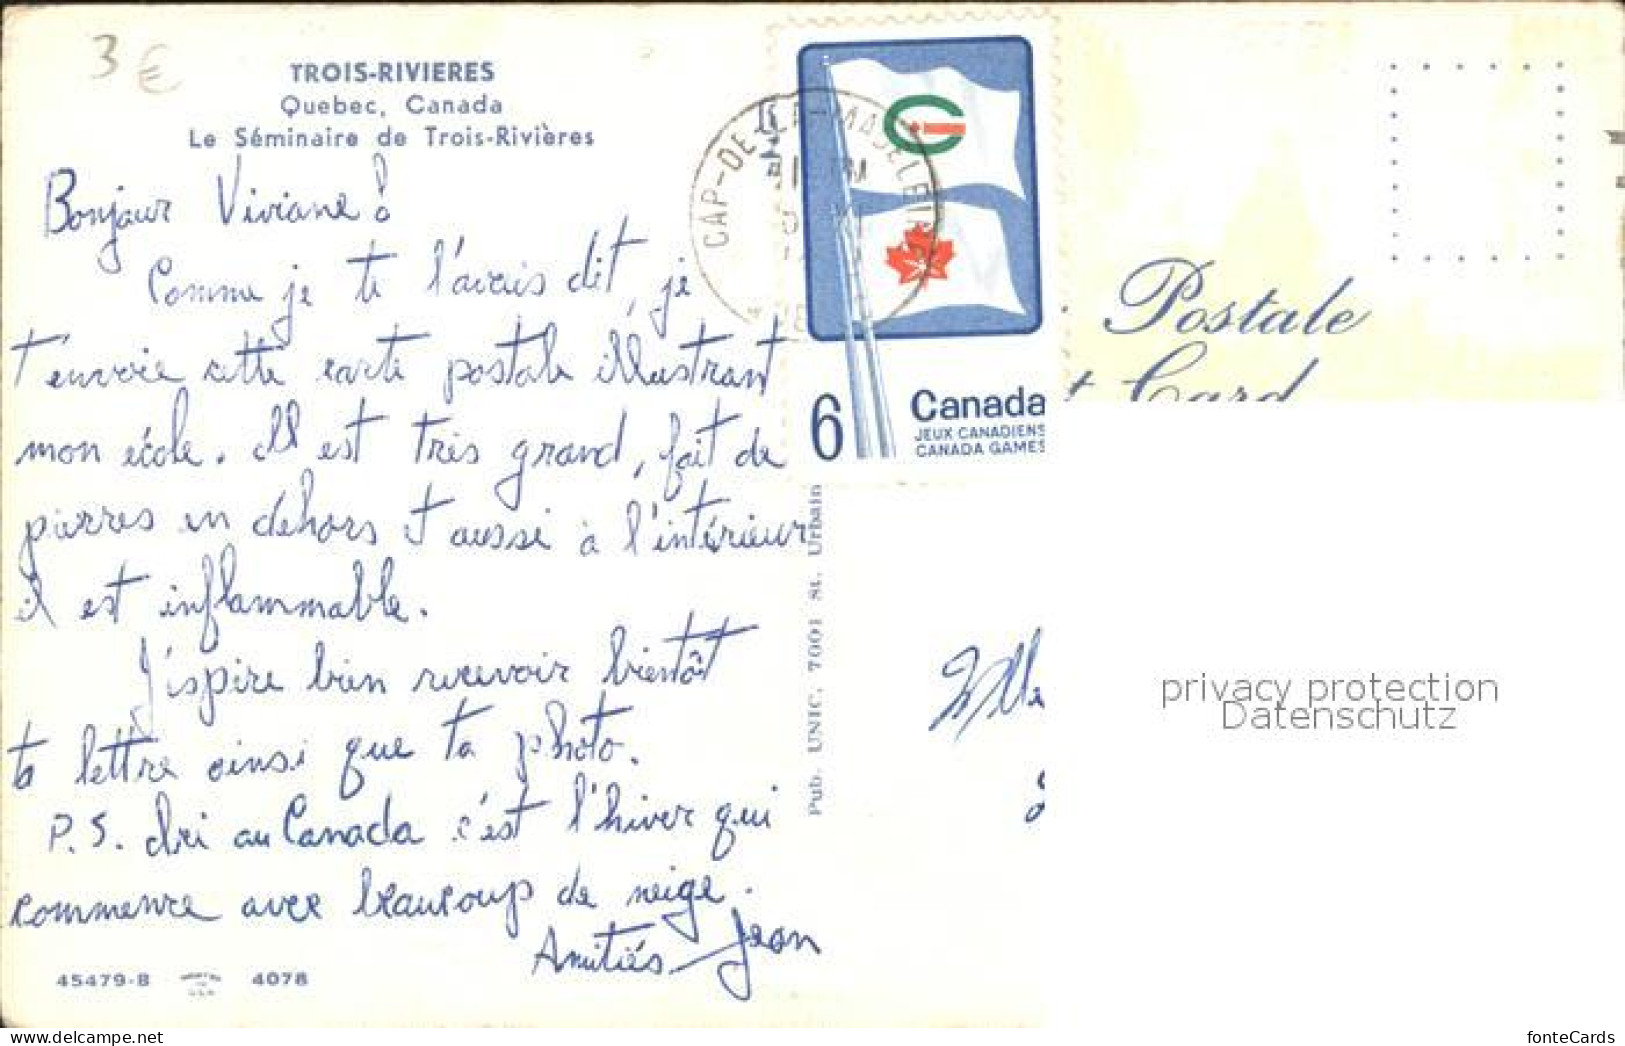 3 €
TROIS-RIVIERES
Quebec, Canada
Le Séminaire de Trois-Rivières
Bonjour Viviane!
Comme je te l'avais dit, je
t'envoie cette carte postale illustrant
mon école. Il est très grand, fait de
pierres en dehors et aussi à l'intérieur
il est inflammable.
J'espère bien recevoir bientôt
ta lettre ainsi que ta photo.
P.S. Ici au Canada c'est l'hiver qui
commence avec beaucoup de neige.
Amitiés Jean
45479-B
4078
CAP-DE-LA-MADELEINE
6
Canada
JEUX CANADIENS
CANADA GAMES
Pub. UNIC, 7001 St. Urbain
Postale
Card
Mlle
privacy protection
Datenschutz
fonteCards